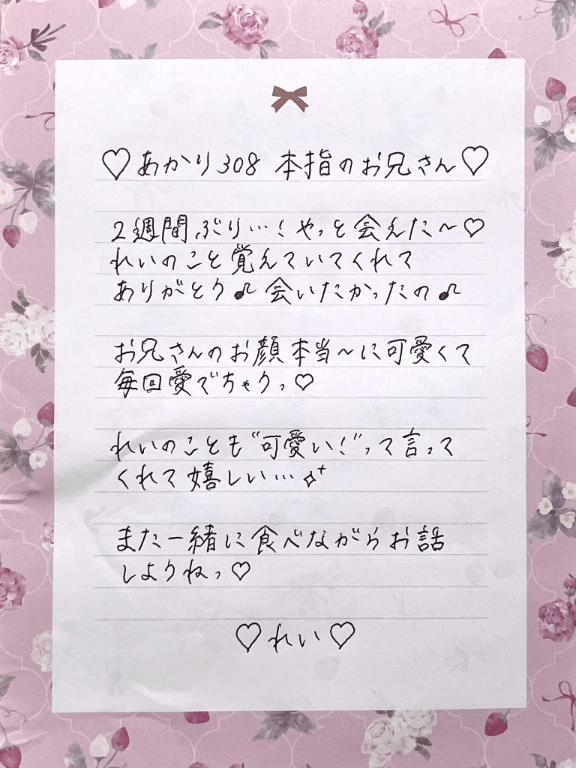 ♡あかり308 本指のお兄さん♡
2週間ぶり…！やっと会えた〜♡
れいのこと覚えていてくれて
ありがとう♪会いたかったの♪
お兄さんのお顔本当〜に可愛くて
毎回愛でちゃうっ♡
れいのことも"可愛い！"って言って
くれて嬉しい…✧⁺
また一緒に食べながらお話
しようねっ♡
♡れい♡